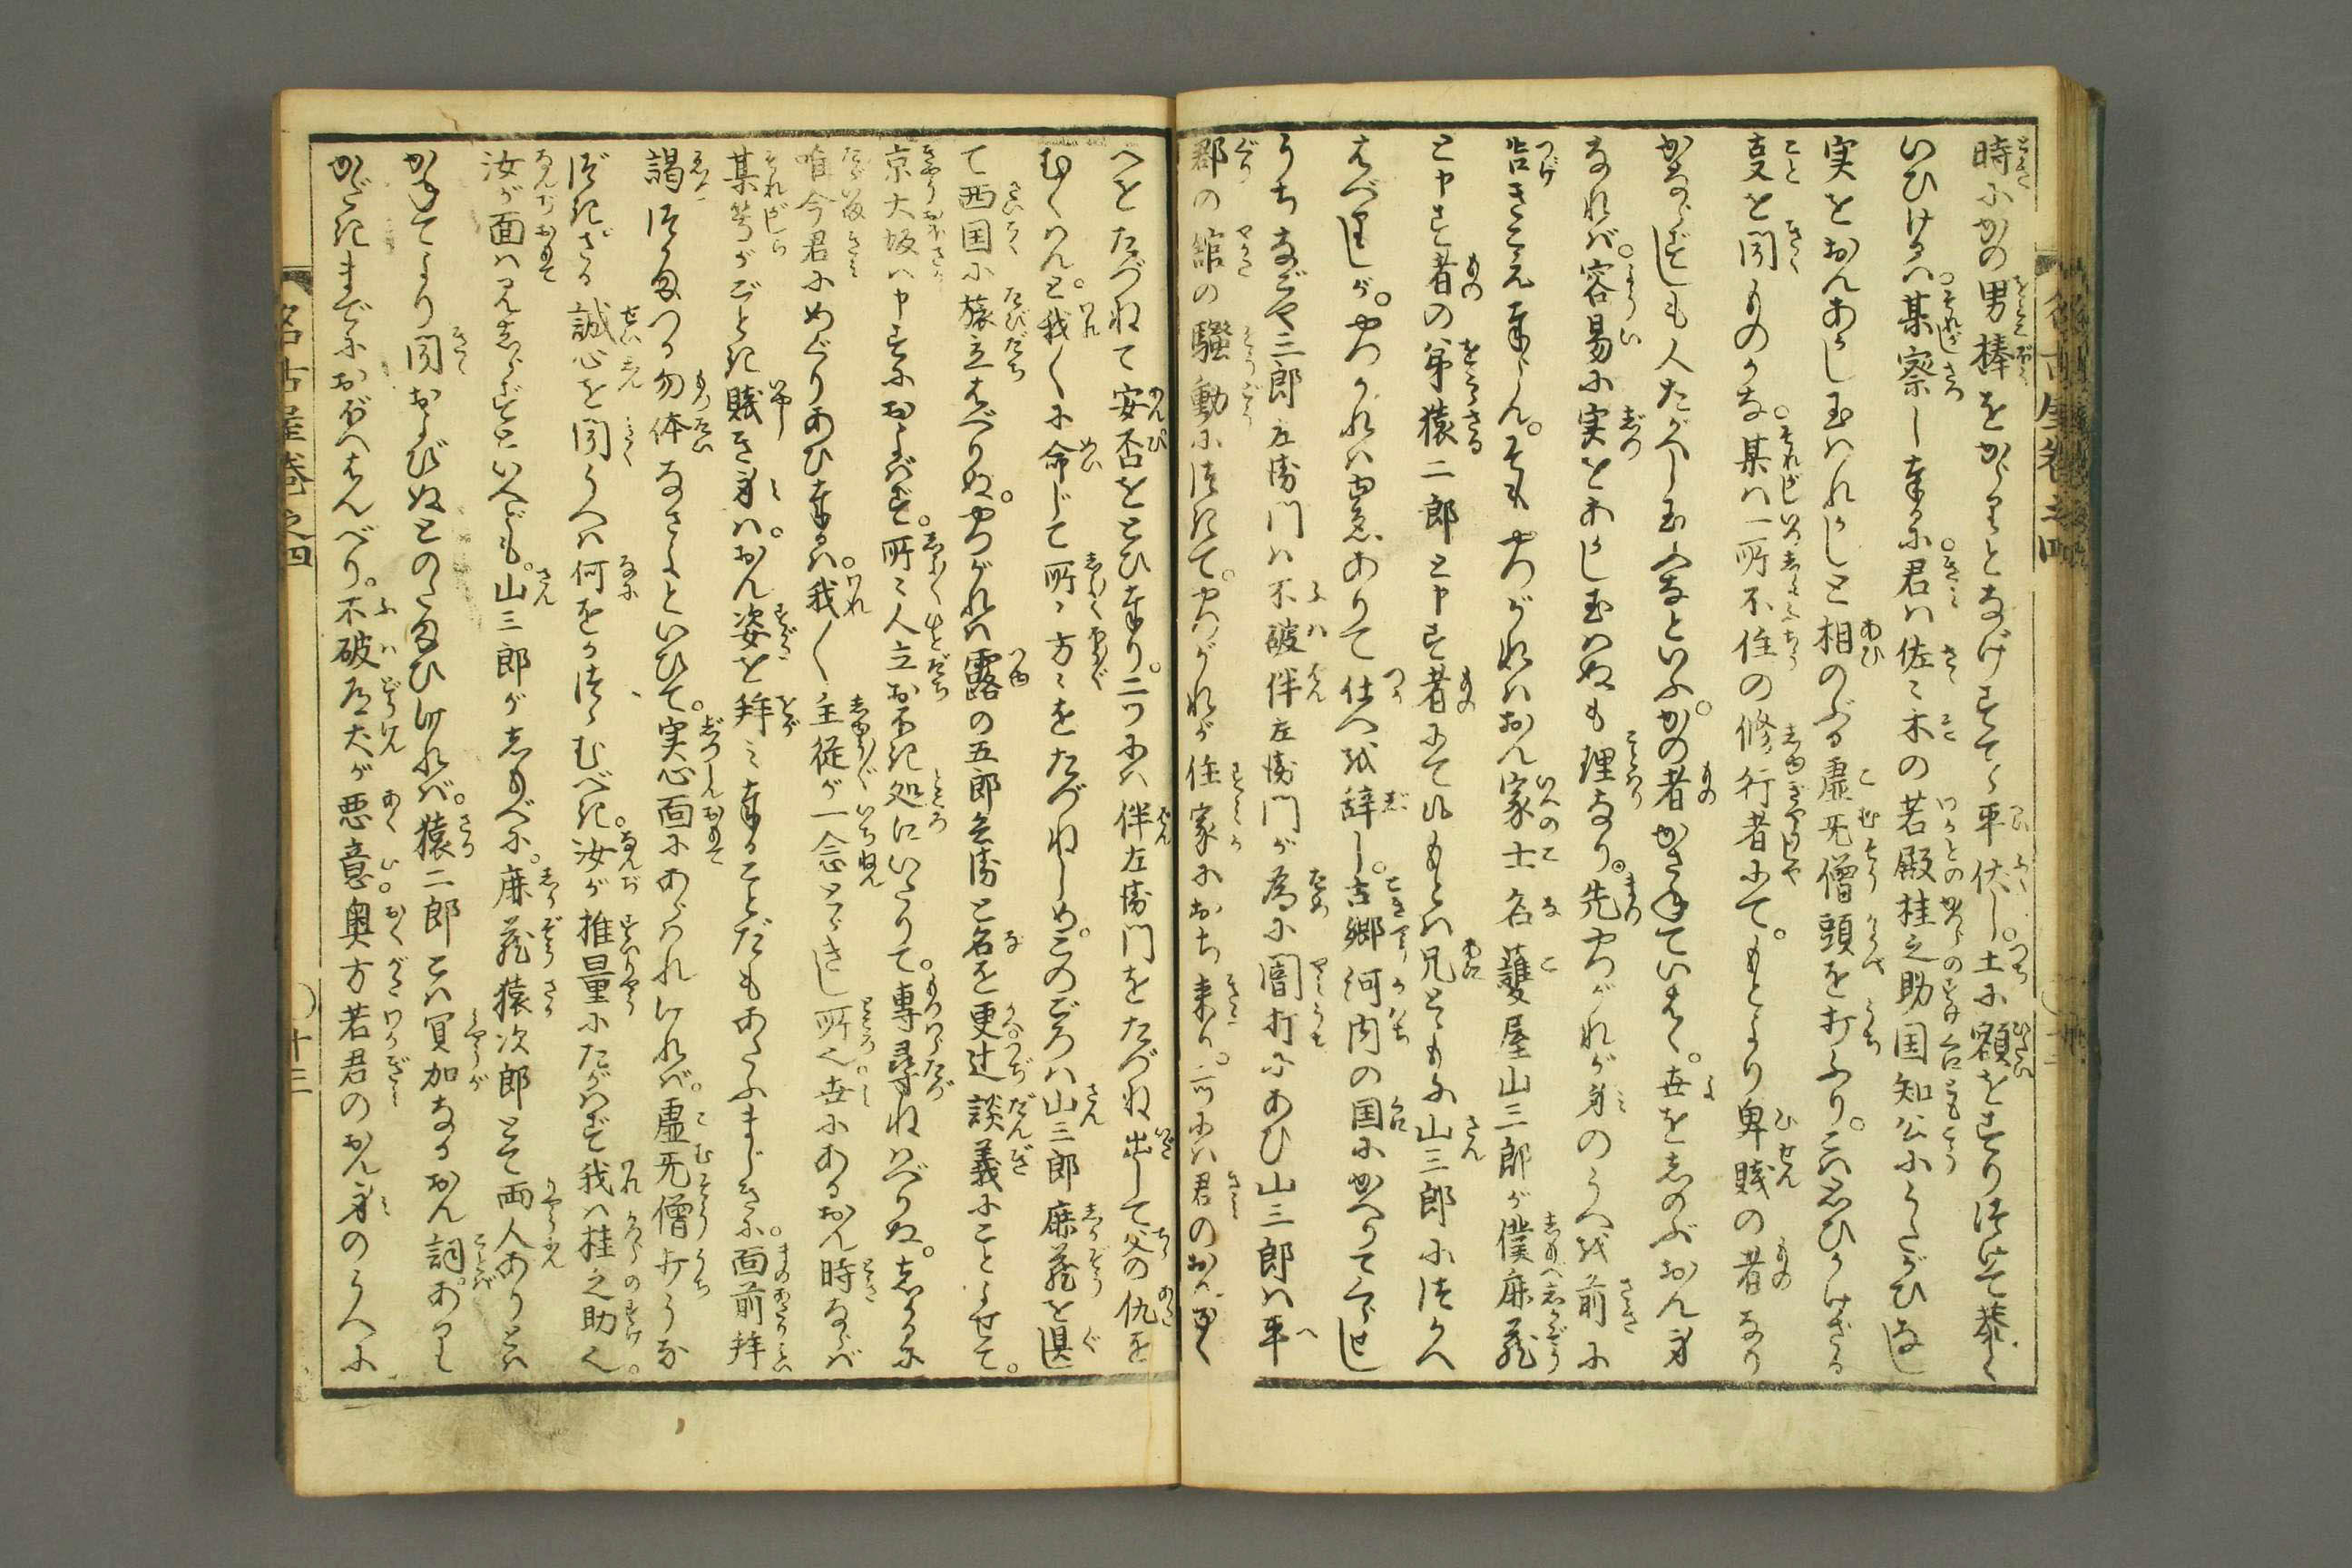 時にかの男棒をからりとなげすて平伏し。土に額をすりつけて恭く
いひけるは某察し奉るに。君は佐々木の若殿桂之助国知公にうたがひなし
実をおんあかし玉はれかしと相のぶる虚無僧頭を打ふり。こは思ひかけざる
事を聞ものかな。某は一所不住の修行者にて。もとより卑賤の者なり
かならずしも人たがへし玉ふなといふ。かの者かさねていはく。世をしのぶおん身
なれば。容易に実をあかし玉はぬも理なり。先やつがれが身のうへを前に
告きこえ奉らん。そもやつがれはおん家士名護屋山三郎が僕鹿蔵
と申す者の弟猿二郎と申す者にて。もとは兄とともに山三郎につかへ
はべりしが。やつがれは故ありて仕へを辞し。古郷河内の国にかへりてくらせし
うちなごや三郎左衛門は不破伴左衛門が為に闇打にあひ山三郎は平
郡の館の騒動につきて。やつがれが住家におち来り。一ツには君のおんゆく
へをたづねて安否をとひ奉り。二ツには伴左衛門をたづね出して父の仇を
むくはんと。我々に命じて所々方々をたづねしめ。このごろは山三郎鹿蔵を具し
て西国に旅立はべりぬ。やつがれは露の五郎兵衛と名を更辻談義にことよせて。
京大坂は申すにおよばず。所々人立おほき処にいたりて。専尋ねはべりぬ。しかるに
唯今君にめぐりあひ奉るは。我々主従が一念とゞきし所也。世にあるおん時ならば
某等がごとき賤き身は。おん姿を拝み奉ることだもあたふまじきに。面前拝
謁つかまつる勿体なさよといひて。実心面にあらはれければ。虚無僧打うな
づき。さる誠心を聞うへは何をかつゝむべき。汝が推量にたがはず我は桂之助也。
汝が面は見しらずといへども。山三郎がしもべに。鹿蔵猿次郎とて両人ありとは
かねてより聞およびぬとのたまひければ。猿二郎こは冥加なるおん詞。ありし
かどきまでにおぼへはんべり。不破道犬が悪意奥方若君のおん身のうへに
名古屋巻之四
十三